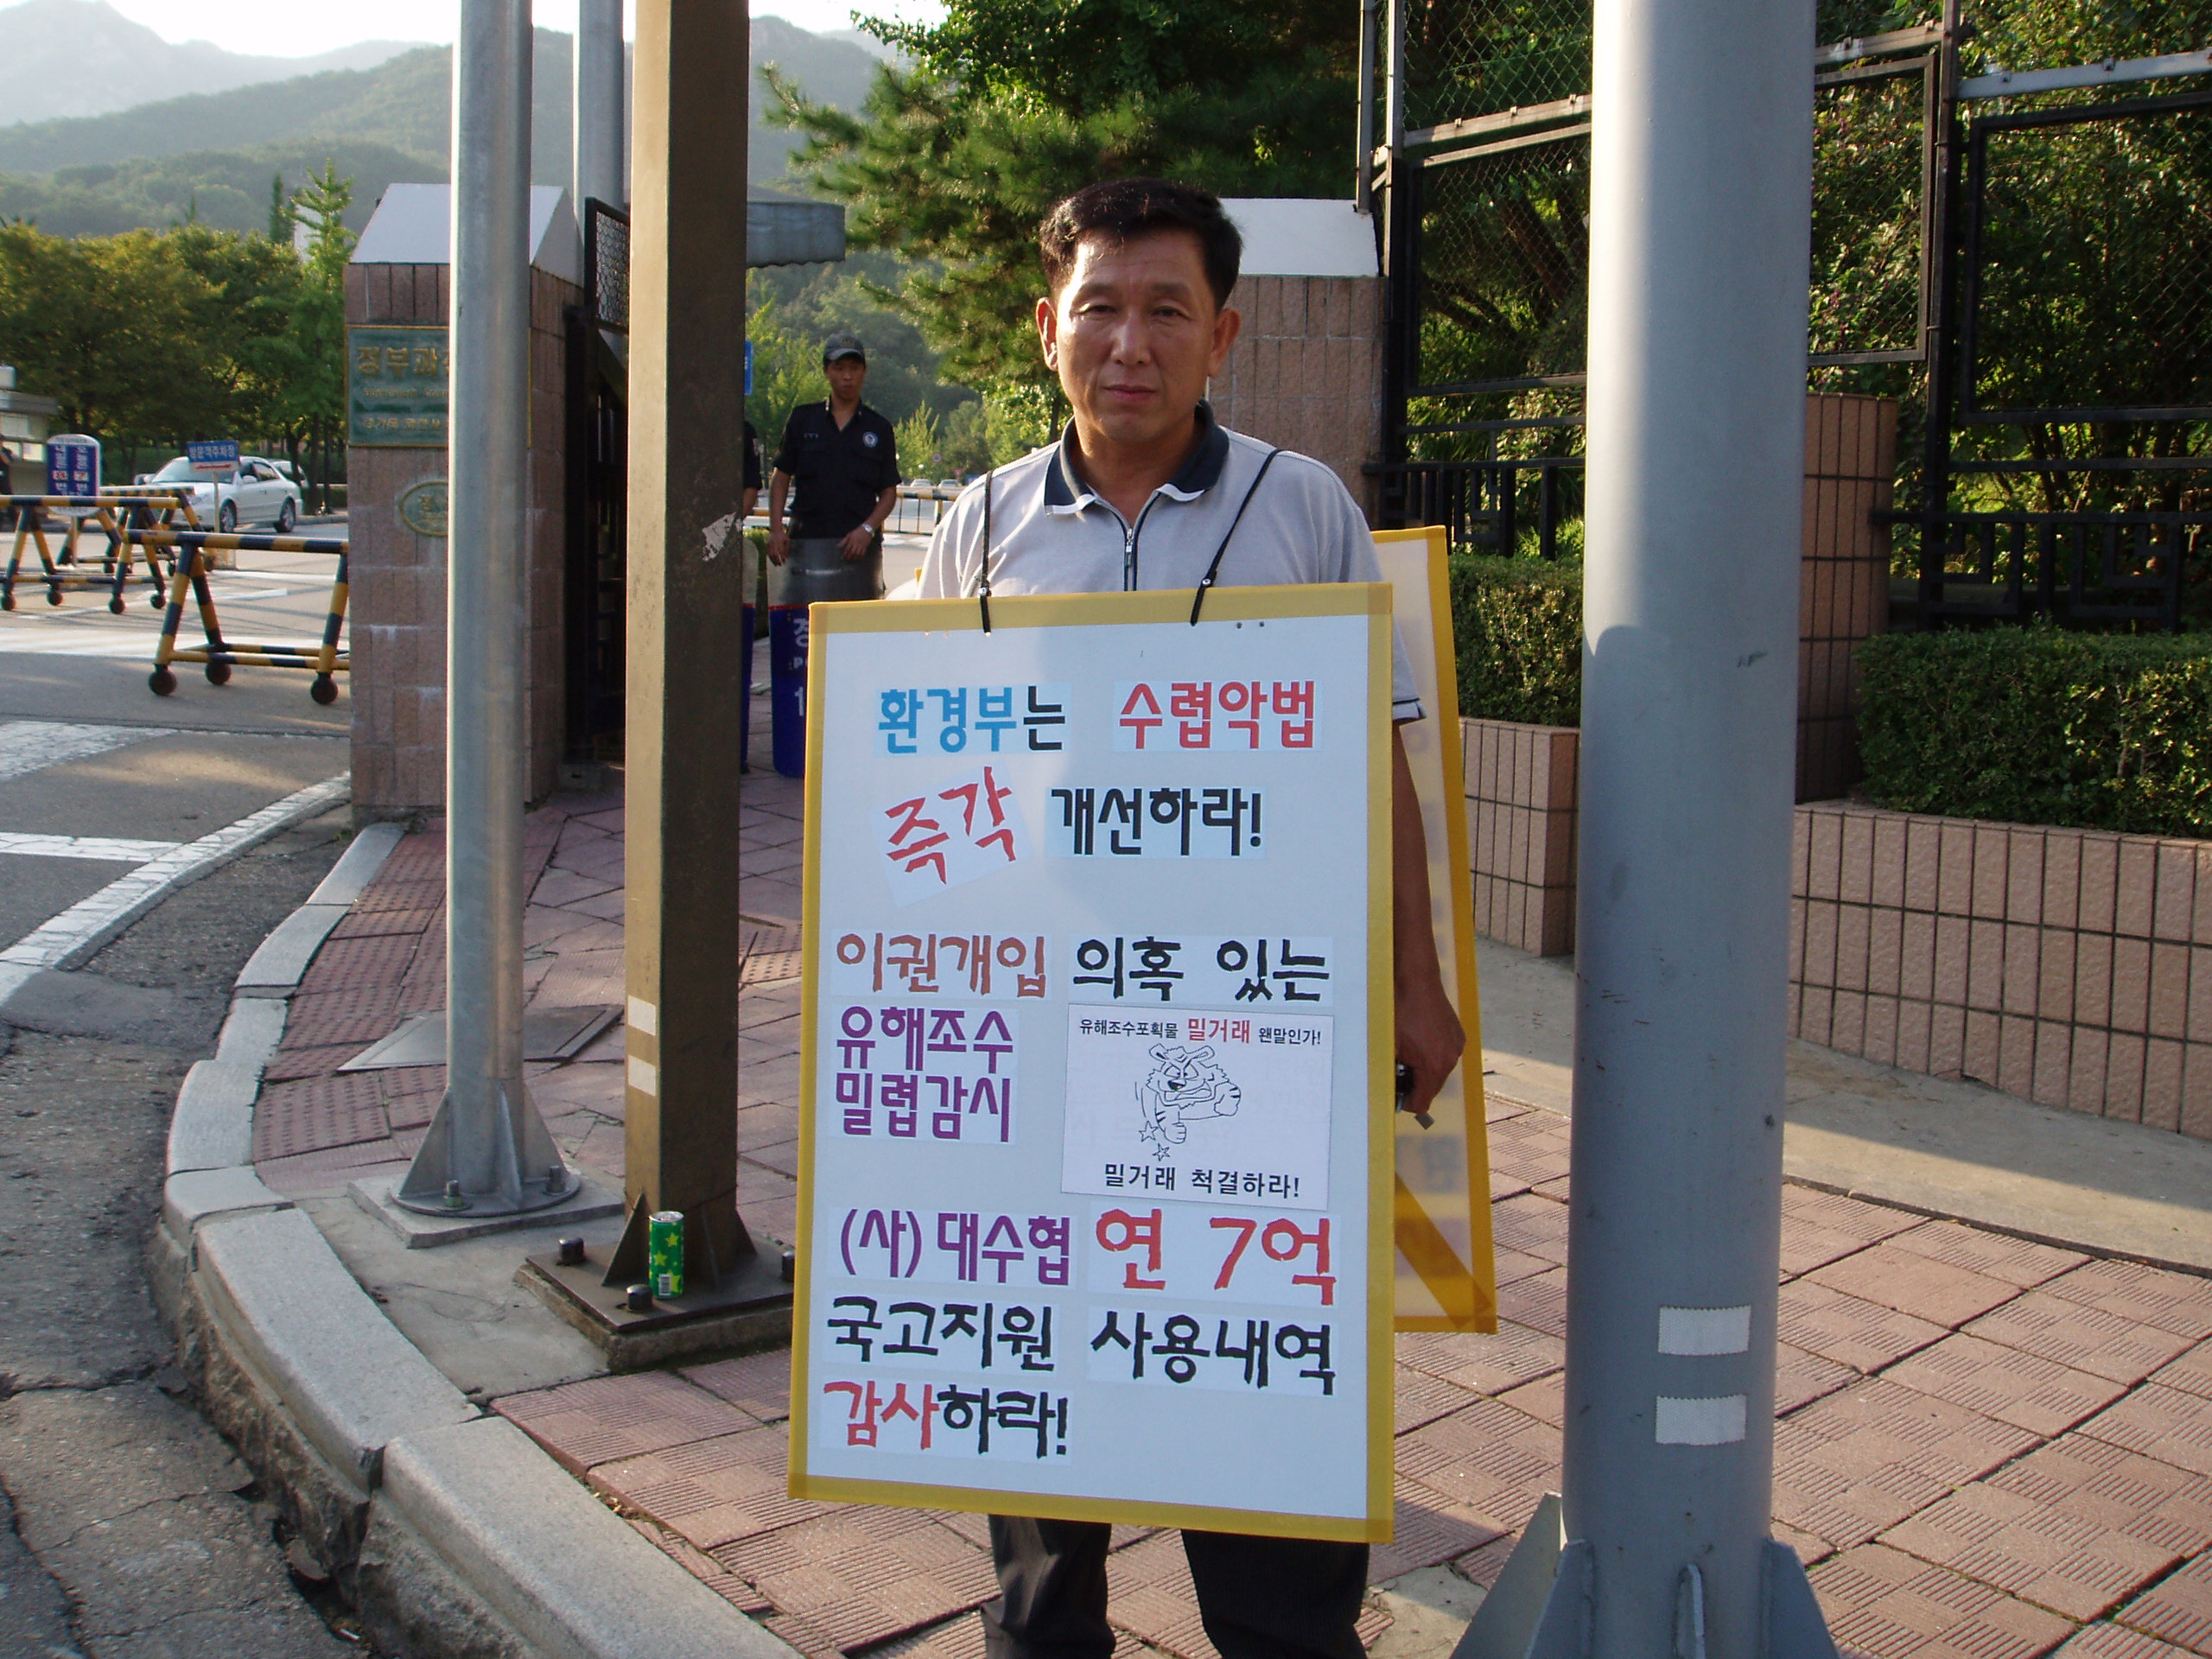 환경부는 수렵악법
즉각 개선하라!
이권개입 의혹 있는
유해조수
밀렵감시
유해조수포획물 밀거래 왠말인가!
밀거래 척결하라!
(사)대수협 연 7억
국고지원 사용내역
감사하라!
정부과
방문객주차장